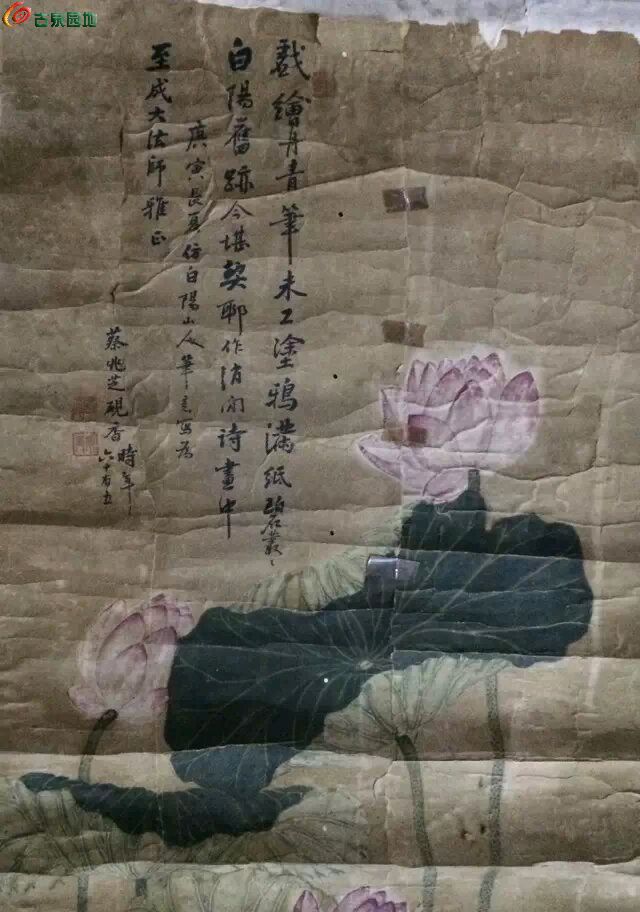 古泉园地
戲繪丹青筆未工塗鴉滿紙碧叢叢
白陽舊跡今堪契聊作消閒詩畫中
庚寅長夏仿白陽山人筆意寫為
至成大法師雅正
蔡兆芝硯香時年
六十有五